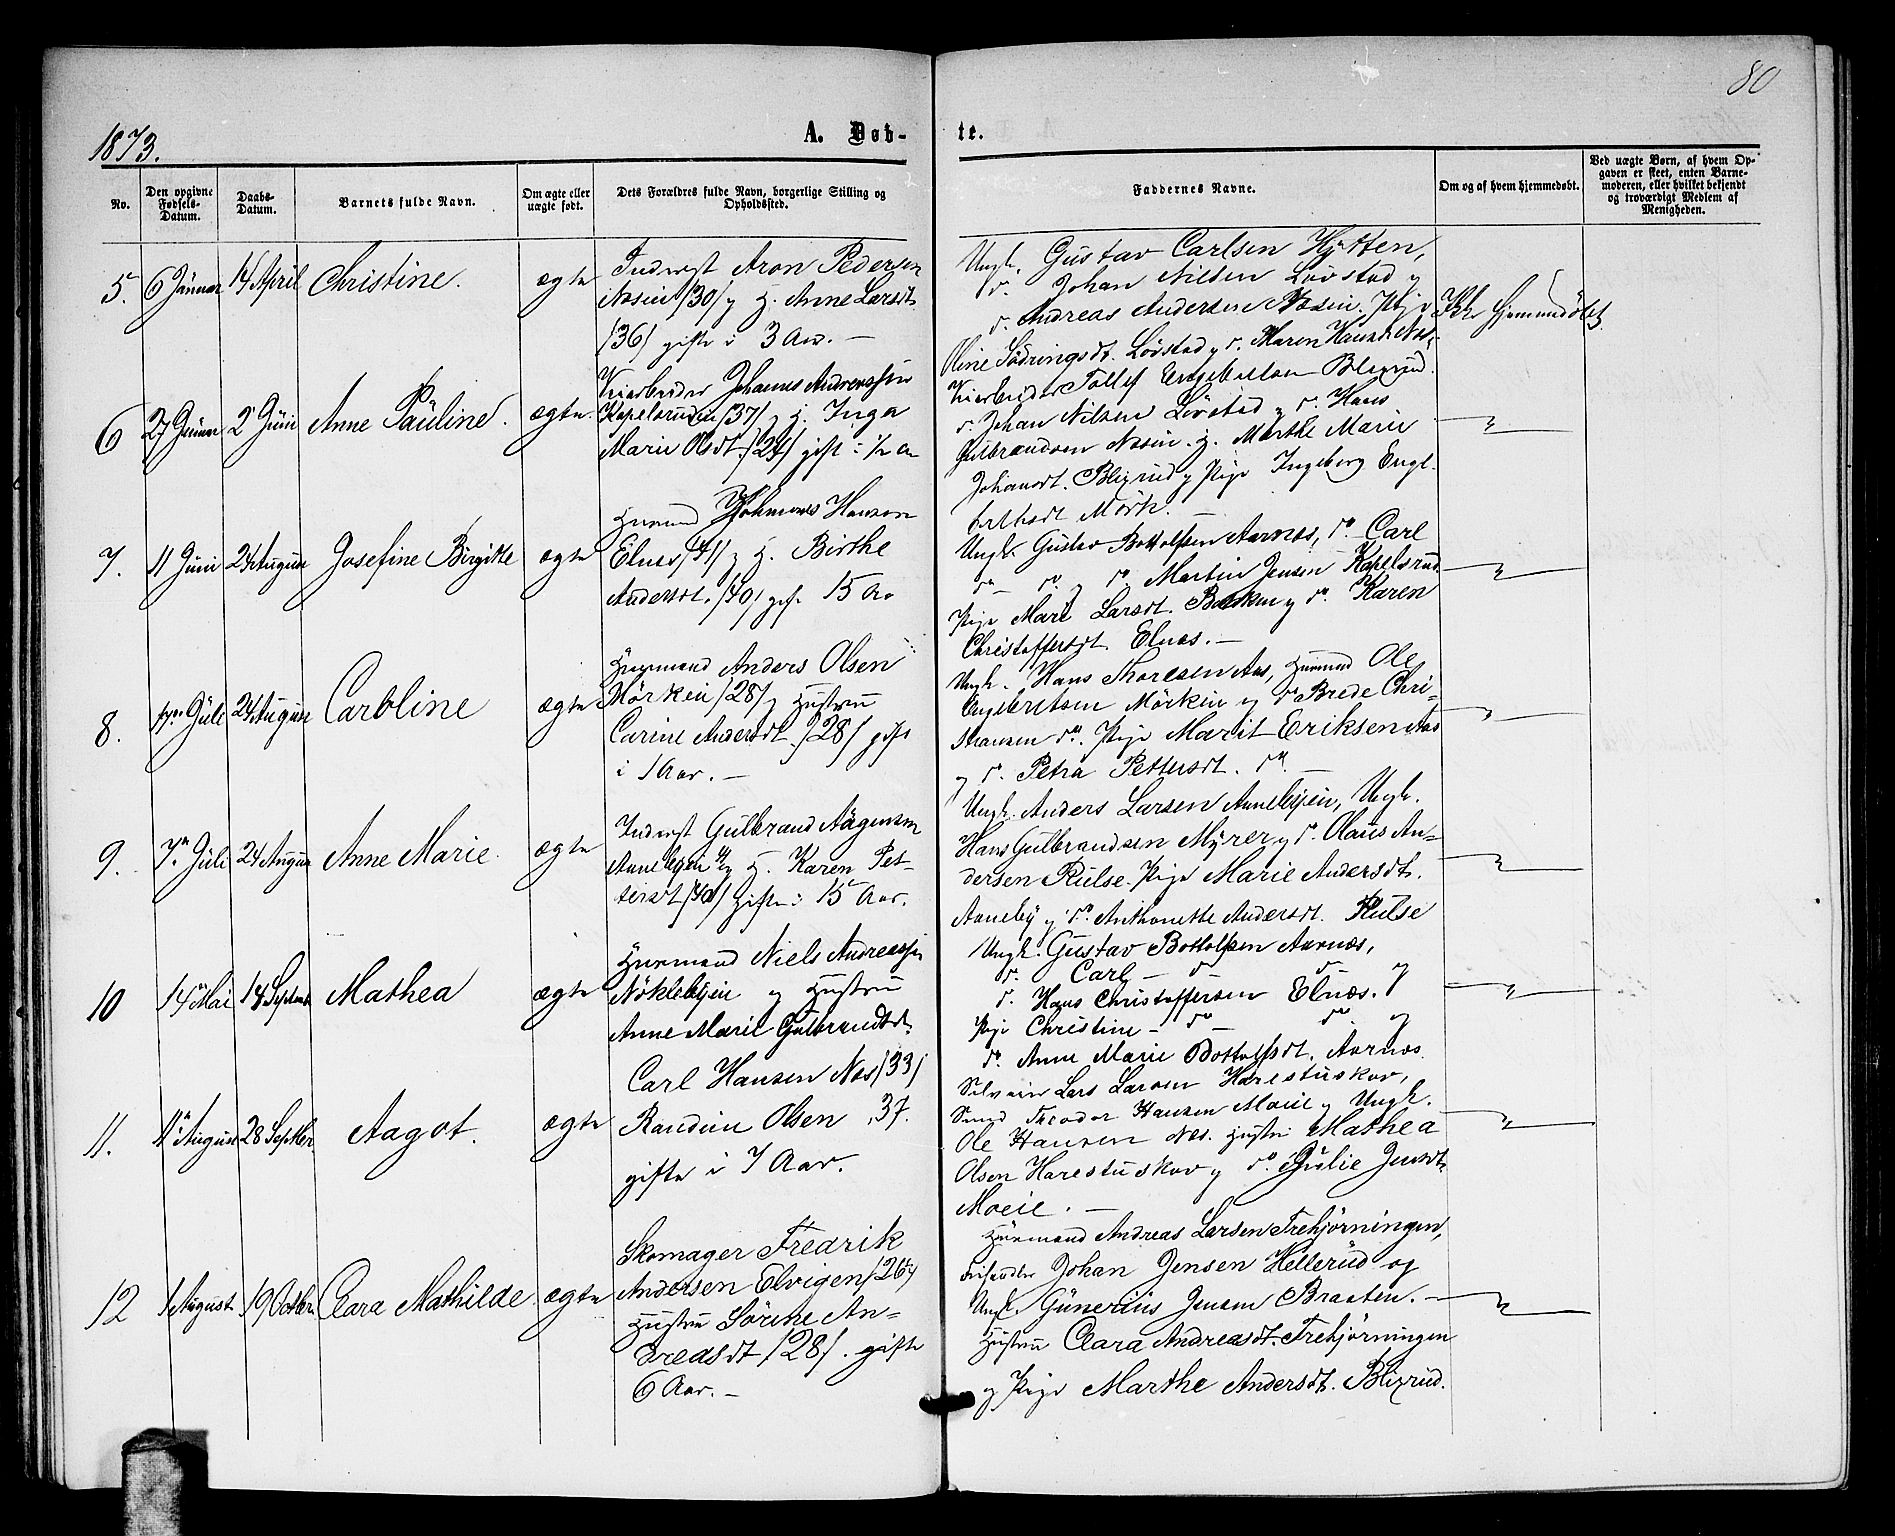 80
1873.
A. Døb-
te.
No.
Den opgivne Fødsels-Datum.
Daabs-Datum.
Barnets fulde Navn.
Om ægte eller uægte født.
Dets Forældres fulde Navn, borgerlige Stilling og Opholdssted.
Faddernes Navne.
Om og af hvem hjemmedøbt.
Ved uægte Børn, af hvem Opgaven er skeet, enten Barnemoderen, eller hvilket bekjendt og troværdigt Medlem af Menigheden.
5. 6 Januar 14 April Christine. ægte
Inderst Aron Pedersen
Næsin /30/ og H. Anne Larsdt.
/36/ gifte i 3 Aar. —
Ungk. Gustav Carlsen Hytten,
do. Johan Nilsen Løvstad og
do. Andreas Andersen Næsin. Pige
Oline Södringsdt. Lövstad og do. Maren Hansdt.
Ikke hjemmedøbt
6 27 Januar 2 Juni Anne Pauline. ægte.
Veiarbeider Johannes Andreassen
Kapelsruden /37/ og H. Inga
Marie Olsdt. /24/ gift i ½ Aar
Veiarbeider Tollef Engebretsen Blixrud.
do. Johan Nilsen Lövstad og do. Hans
Gulbrandsen Næsin. H. Marthe Marie
Johansdt. Blixrud og Pige Ingeborg Engl-
bretsdt. Mörk.
7. 11 Juni 24 August Josefine Birgitte ægte
Huusmand Johannes Hansen
Elnæs /41/ og H. Birthe
Andersdt. /40/ gift 15 Aar
Ungk. Gustav Bottolfsen Aarnæs, do. Carl
do — do. og do. Martin Jensen Kapelsrud
Pige Mari Larsdt. Bakken og do. Karen
Christoffersdt. Elnæs. —
8. Juli 24 August Caroline ægte
Huusmand Anders Olsen
Mörkin /28/ og Hustru
Carine Andersdt. /28/ gifte
i 1 Aar. —
Ungk. Hans Thoresen Aas, Huusmand Ole
Engebretsen Mörkin og do Brede Chri-
stiansen do. Pige Marit Eriksen Aas
og do. Petra Pettersdt. do. —
9. 7de Juli 24 August Anne Marie. ægte
Inderst Gulbrand Aagesen
Annebyen og H. Karen Pet-
tersdt /40/ gifte i 15 Aar.
Ungk. Anders Larsen Annebyen, Ungk.
Hans Gulbrandsen Myrer og do. Olaus An-
dersen Rulse. Pige Marie Andersdt.
Aaneby og do. Anthonette Andersdt. Rulse
10 14 Mai 14 Septemb. Mathea ægte
Huusmand Niels Andreassen
Nöklebyen og Hustru
Anne Marie Gulbrandsdt.
Ungk. Gustav Bottolfsen Aarnæs,
do. Carl — do — do —
do. Hans Christoffersen Elnæs. og
Pige Christine — do — do — og
do. Anne Marie Bottolfsdt. Aarnæs.
11. August 28 Septbr. Aagot. ægte
Carl Hansen Næs /33/
Randine Olsen 37.
gifte i 7 Aar.
Selveier Lars Larsen Harestuskov,
Smed Theodor Hansen Moeie og Ungk.
Ole Hansen Næs. Hustru Mathea
Olsen Harestuskov og do. Julie Jensdt.
Moeie. —
12 1 August 19 Octbr. Clara Mathilde ægte
Skomager Fredrik
Andersen Elvigen /26/ og
Hustru Sörine An-
dreasdt /28/. gifte
6 Aar. —
Huusmand Andreas Larsen Trehjörningen,
Johan Jensen Hellerud og
Ungk. Günerius Jensen Braaten. —
Hustru Clara Andreasdt. Trehjörningen
og Pige Marthe Andersdt. Blixrud.